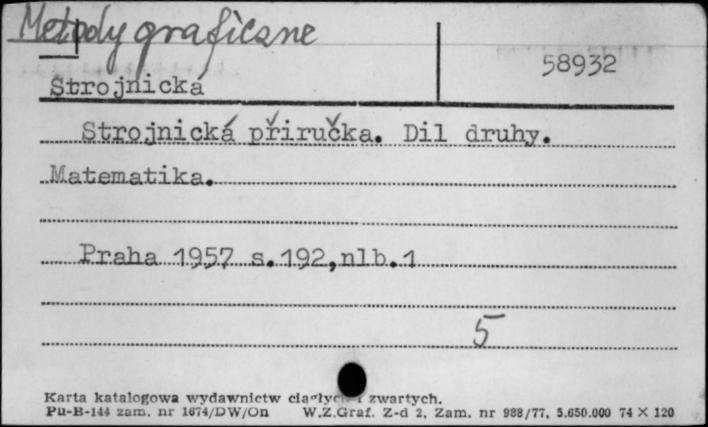 Metody graficzne
58932
Strojnická
Strojnická přiručka. Dil druhy.
Matematika.
Praha 1957 s.192,nlb.1
5
Karta katalogowa wydawnictw ciągłych i zwartych.
Pu-B-144 zam. nr 1674/DW/On W.Z.Graf. Z-d 2, Zam. nr 988/77, 5.650.000 74 X 120